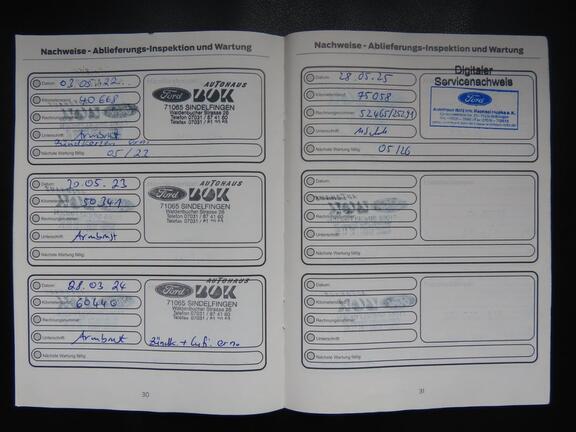 Nachweise - Ablieferungs-Inspektion und Wartung
Datum: 03.05.22
Kilometerstand: 40 668
Rechnungsnummer:
Unterschrift: Armbrust
Zündkerzen ern.
Nächste Wartung fällig: 05/23
AUTOHAUS
Ford BÖK
71065 SINDELFINGEN
Waldenbucher Strasse 26
Telefon 07031 / 87 41 60
Telefax 07031 /
Datum: 20.05.23
Kilometerstand: 50341
Rechnungsnummer:
Unterschrift: Armbrust
Nächste Wartung fällig:
AUTOHAUS
Ford BÖK
71065 SINDELFINGEN
Waldenbucher Strasse 26
Telefon 07031 / 87 41 60
Telefax 07031 /
Datum: 28.03 24
Kilometerstand: 60440
Rechnungsnummer:
Unterschrift: Armbrust
Zündk. + Lufi. ern.
Nächste Wartung fällig:
AUTOHAUS
Ford BÖK
71065 SINDELFINGEN
Waldenbucher Strasse 26
Telefon 07031 / 87 41 60
Telefax 07031 /
30
Nachweise - Ablieferungs-Inspektion und Wartung
Datum: 28.05.25
Kilometerstand: 75058
Rechnungsnummer:
Unterschrift:
Nächste Wartung fällig: 05/26
Digitaler
Servicenachweis
Ford
Datum:
Kilometerstand:
Rechnungsnummer:
Unterschrift:
Nächste Wartung fällig:
Datum:
Kilometerstand:
Rechnungsnummer:
Unterschrift:
Nächste Wartung fällig:
31